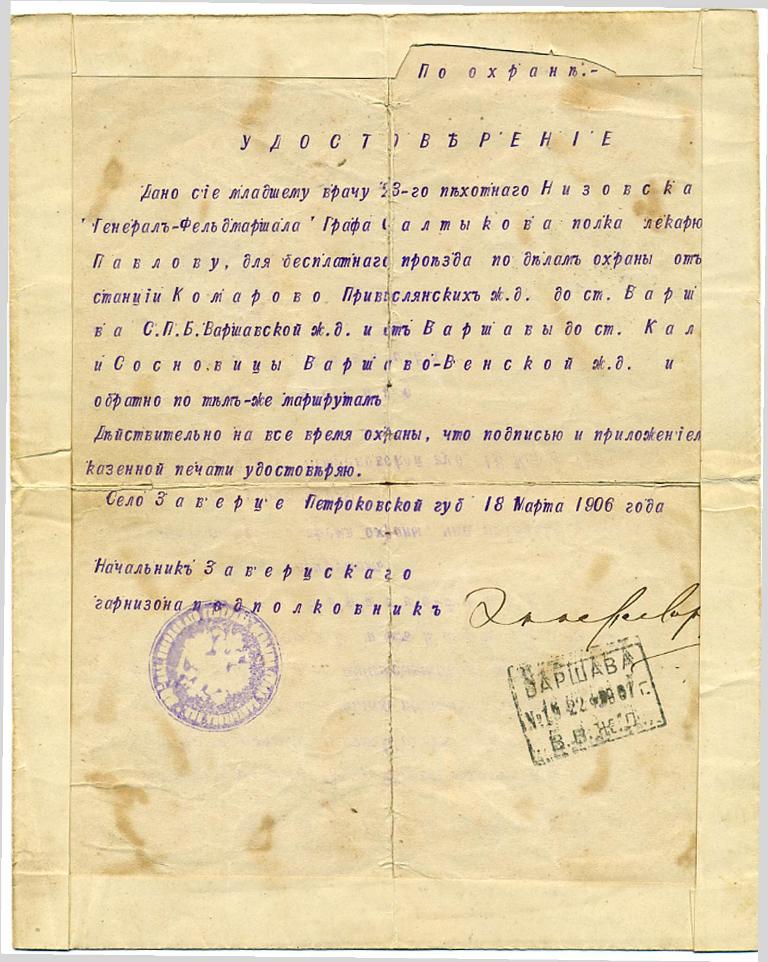 По охранѣ.-
УДОСТОВѢРЕНІЕ
Дано сіе младшему врачу 23-го пѣхотнаго Низовска
Генералъ-Фельдмаршала Графа Салтыкова полка лекарю
Павлову, для бесплатнаго проѣзда по дѣламъ охраны отъ
станціи Комарово Привислянскихъ ж.д. до ст. Варш
ва С.П.Б.Варшавской ж.д. и отъ Варшавы до ст. Кал
и Сосновицы Варшаво-Венской ж.д. и
обратно по тѣмъ-же маршрутамъ
Дѣйствительно на все время охраны, что подписью и приложеніем
казенной печати удостовѣряю.
Село Заверце Петроковской губ 18 Марта 1906 года
Начальникъ Заверцскаго
гарнизона подполковникъ
ВАРШАВА
В.В.ж.д.